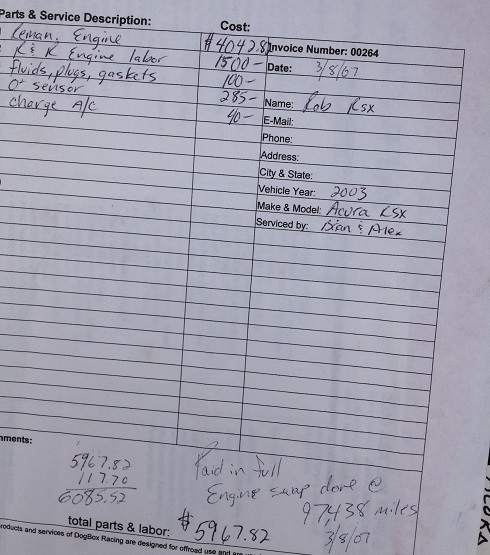 Parts & Service Description: Cost:
Reman. Engine $4042.82
R & R Engine labor 1500-
fluids, plugs, gaskets 100-
O² sensor 285-
charge A/C 40-
Invoice Number: 00264
Date: 3/8/07
Name: Rob Rsx
E-Mail:
Phone:
Address:
City & State:
Vehicle Year: 2003
Make & Model: Acura RSX
Serviced by: Brian & Alex
mments:
5967.82
117.70
6085.52
Paid in full
Engine swap done @
97,438 miles
3/8/07
total parts & labor: $5967.82
roducts and services of DogBox Racing are designed for offroad use and